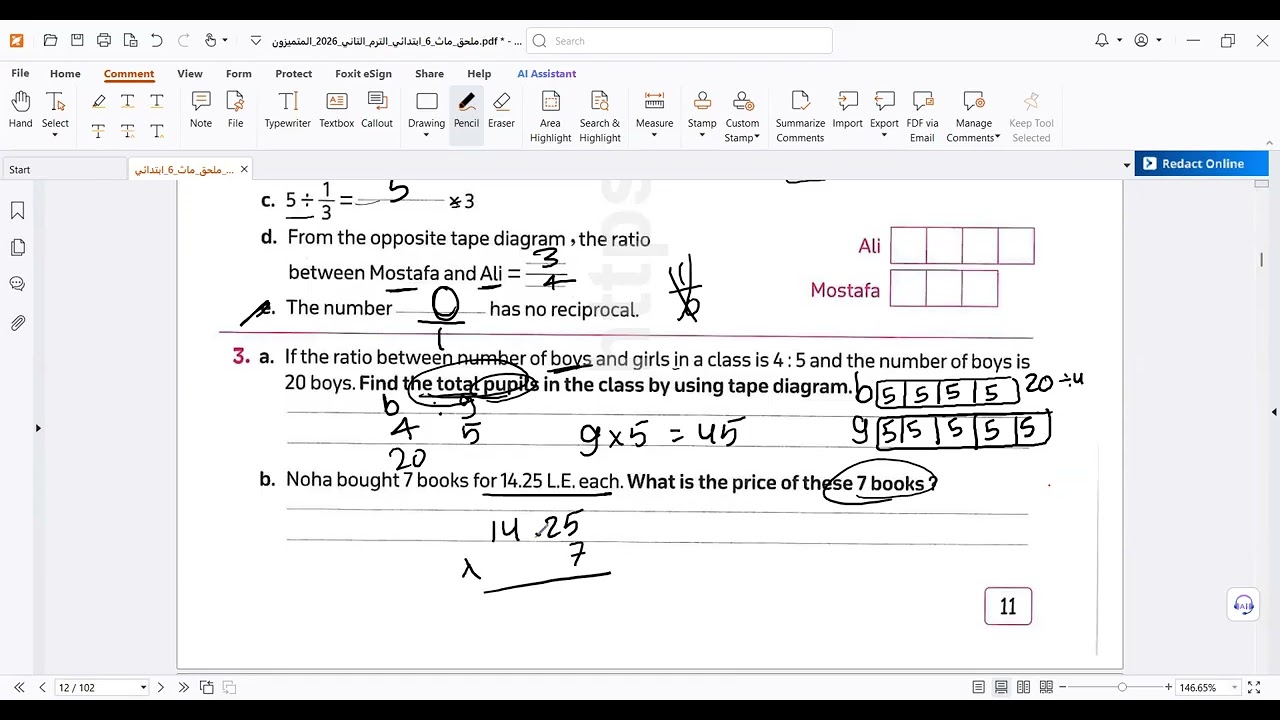 ملحق_ماث_6_ابتدائي_الترم_الثاني_2026_المتميزون.pdf * - ...
Search
File Home Comment View Form Protect Foxit eSign Share Help AI Assistant
Hand Select Note File Typewriter Textbox Callout Drawing Pencil Eraser Area Highlight Search & Highlight Measure Stamp Custom Stamp Summarize Comments Import Export FDF via Email Manage Comments Keep Tool Selected
Start ملحق_ماث_6_ابتدائي_... Redact Online
https
c. 5 ÷ 1/3 = 5 × 3
d. From the opposite tape diagram , the ratio
Ali
between Mostafa and Ali = 3/4
Mostafa
e. The number 0 has no reciprocal.
1
3. a. If the ratio between number of boys and girls in a class is 4 : 5 and the number of boys is
20 boys. Find the total pupils in the class by using tape diagram.
b 5 5 5 5 20 ÷4
b : g
4 5
9 x 5 = 45
g 5 5 5 5 5
20
b. Noha bought 7 books for 14.25 L.E. each. What is the price of these 7 books ?
14.25
7
x
11
12 / 102
146.65%